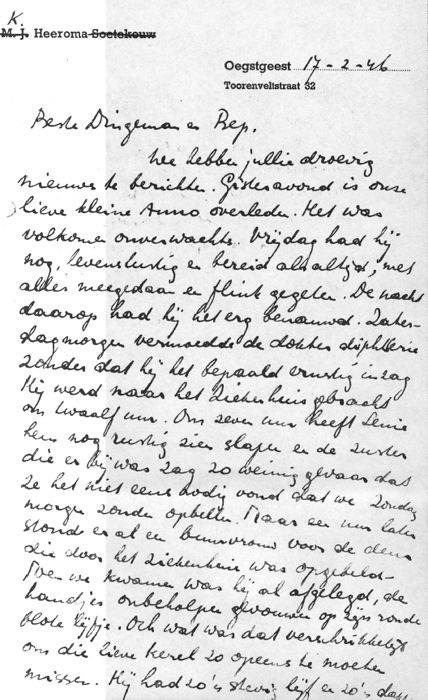 K.
M. J. Heeroma-Soetekouw
Oegstgeest 17-2-46
Toorenveltstraat 32
Beste Dingeman en Bep,
We hebben jullie droevig
nieuws te berichten. Gisteravond is onze
lieve kleine Anno overleden. Het was
volkomen onverwachts. Vrijdag had hij
nog, levenslustig en bereid als altijd, met
alles meegedaan en flink gegeten. De nacht
daarop had hij het erg benauwd. Zater-
dagmorgen vermoedde de dokter diphtherie
zonder dat hij het bepaald ernstig inzag
Hij werd naar het Ziekenhuis gebracht
om twaalf uur. Om zeven uur heeft Lenie
hem nog rustig zien slapen en de zuster
die er bij was zag zo weinig gevaar dat
ze het niet eens nodig vond dat we Zondag
morgen zouden opbellen. Maar een uur later
stond er al een buurvrouw voor de deur
die door het Ziekenhuis was opgebeld.
Toen we kwamen was hij al afgelegd, de
handjes onbeholpen gevouwen op zijn ronde
blote lijfje. Och wat was dat verschrikkelijk
om die lieve kerel zo opeens te moeten
missen. Hij had zo'n stevig lijf en zo'n